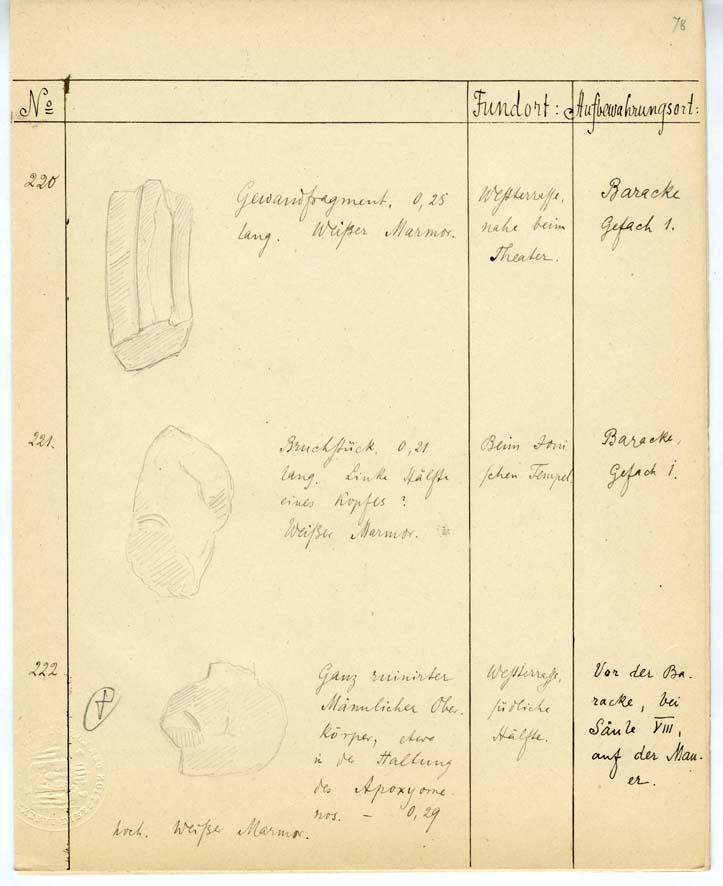 78
No Fundort: Aufbewahrungsort:
220 Gewandfragment. 0,25 Westterrasse, Baracke
lang. Weißer Marmor. nahe beim Gefach 1.
Theater.
221. Bruchstück. 0,21 Beim Ioni Baracke,
lang. Linke Hälfte schen Tempel Gefach 1.
eines Kopfes?
Weißer Marmor.
222 Ganz ruinirter Westterrasse, Vor der Ba-
Männlicher Ober- südliche racke, bei
körper, etwa Hälfte. Säule VIII,
in der Haltung auf der Mau-
des Apoxyome- er.
nos. – 0,29
hoch. Weißer Marmor.